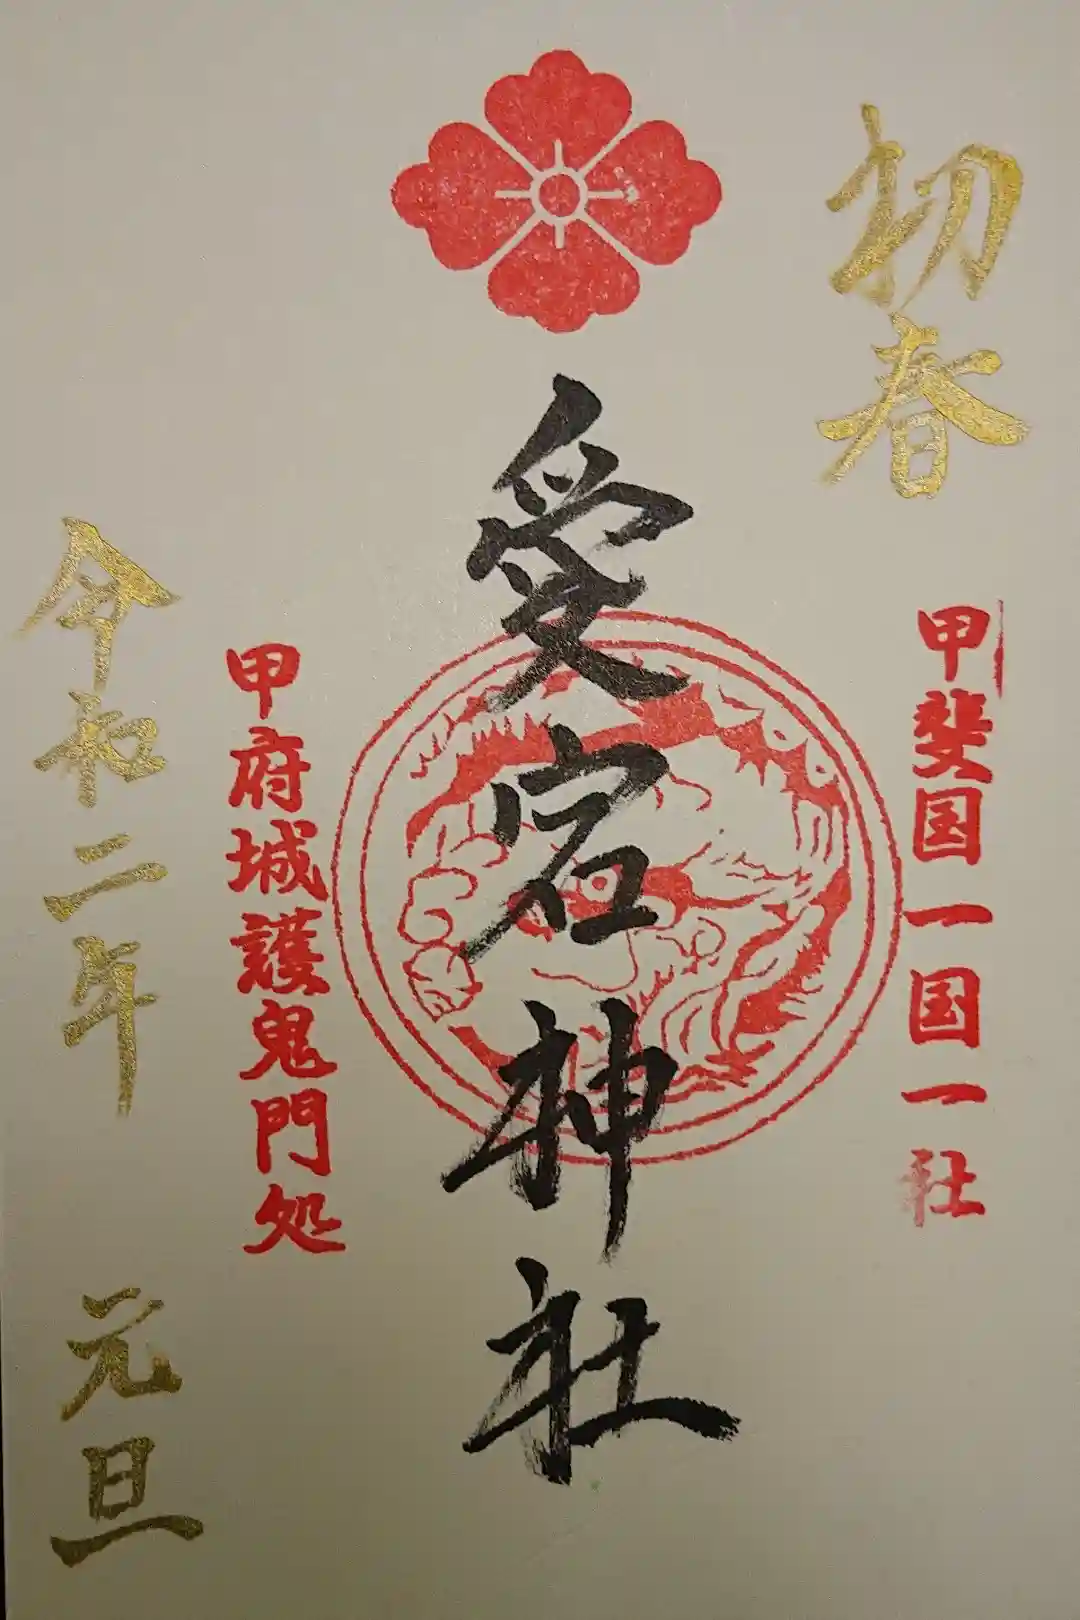 初春
甲斐国一国一社
愛宕神社
甲府城護鬼門処
令和二年 元旦